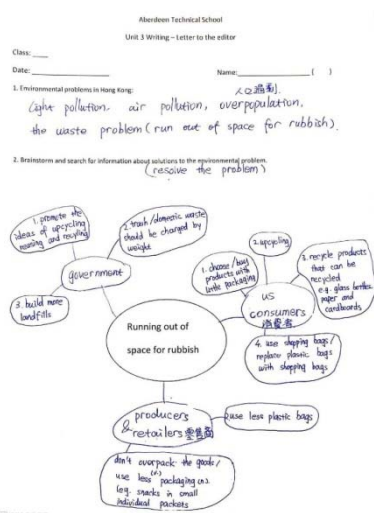 Aberdeen Technical School
Unit 3 Writing – Letter to the editor
Class: ____
Date: ____________ Name: ____________ ( )
1. Environmental problems in Hong Kong: 人口過剩
Light pollution. air pollution, overpopulation.
the waste problem (run out of space for rubbish).
2. Brainstorm and search for information about solutions to the environmental problem.
(resolve the problem)
1. promote the
ideas of upcycling
reusing and recycling
2. trash/domestic waste
should be charged by
weight
government
3. build more
landfills
2. upcycling
1. choose/buy
products with
little packaging
3. recycle products
that can be
recycled
e.g. glass bottles
paper and
cardboards
us
consumers
消費者
4. use shopping bags/
replace plastic bags
with shopping bags
Running out of
space for rubbish
producers
& retailers 零售商
use less plastic bags
don't overpack the goods/
use less packaging (n.)
(eg. snacks in small
individual packets